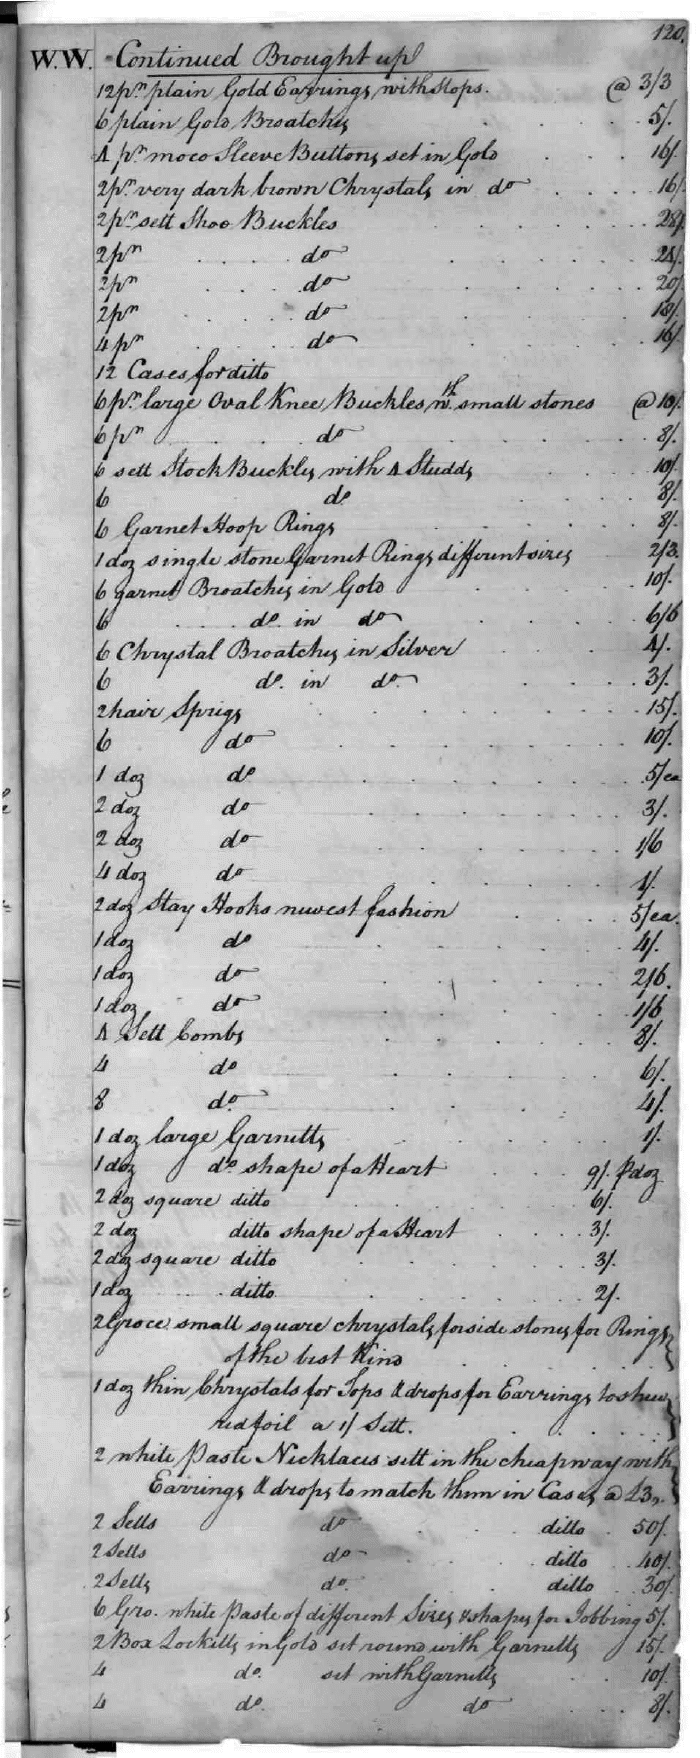 120.
W.W. Continued Brought up
12 prs plain Gold Earrings with Stops. @ 3/3
6 plain Gold Broatches 5/.
4 prs moco Sleeve Buttons set in Gold 16/.
2 prs very dark brown Chrystals in do 16/.
2 prs sett Shoe Buckles 28/.
2 prs do 24/.
2 prs do 20/.
2 prs do 18/.
4 prs do 16/.
12 Cases for ditto
6 prs large Oval Knee Buckles wth. small stones @ 10/.
6 prs do 8/.
6 sett Stock Buckles with 4 Studds 10/.
6 do 8/.
6 Garnet Hoop Rings 8/.
1 doz single stone Garnet Rings different sizes 2/3.
6 garnet Broatches in Gold 10/.
6 do. in do 6/6
6 Chrystal Broatches in Silver 4/.
6 do. in do. 3/.
2 hair Sprigs 15/.
6 do 10/.
1 doz do 5/ea
2 doz do 3/.
2 doz do 1/6
4 doz do 1/.
2 doz Stay Hooks newest fashion 5/ea.
1 doz do 4/.
1 doz do 2/6.
1 doz do 1/6
4 Sett Combs 8/.
4 do 6/.
8 do. 4/.
1 doz large Garnetts 1/.
1 doz do. shape of a Heart 9/. P doz
2 doz square ditto 6/.
2 doz ditto shape of a Heart 3/.
2 doz square ditto 3/.
1 doz ditto 2/.
2 Groce small square chrystals for side stones for Rings
of the best Kind
1 doz thin Chrystals for Tops & drops for Earrings to shew
red foil a 1/ Sett.
2 white Paste Necklaces sett in the cheap way with
Earrings & drops to match them in Cases @ £3..
2 Setts do ditto 50/.
2 Setts do ditto 40/.
2 Setts do. ditto 30/.
6 Gro. white Paste of different Sizes & shapes for Jobbing 5/.
2 Box Locketts in Gold set round with Garnetts 15/.
4 do. set with Garnetts 10/.
4 do. do 8/.